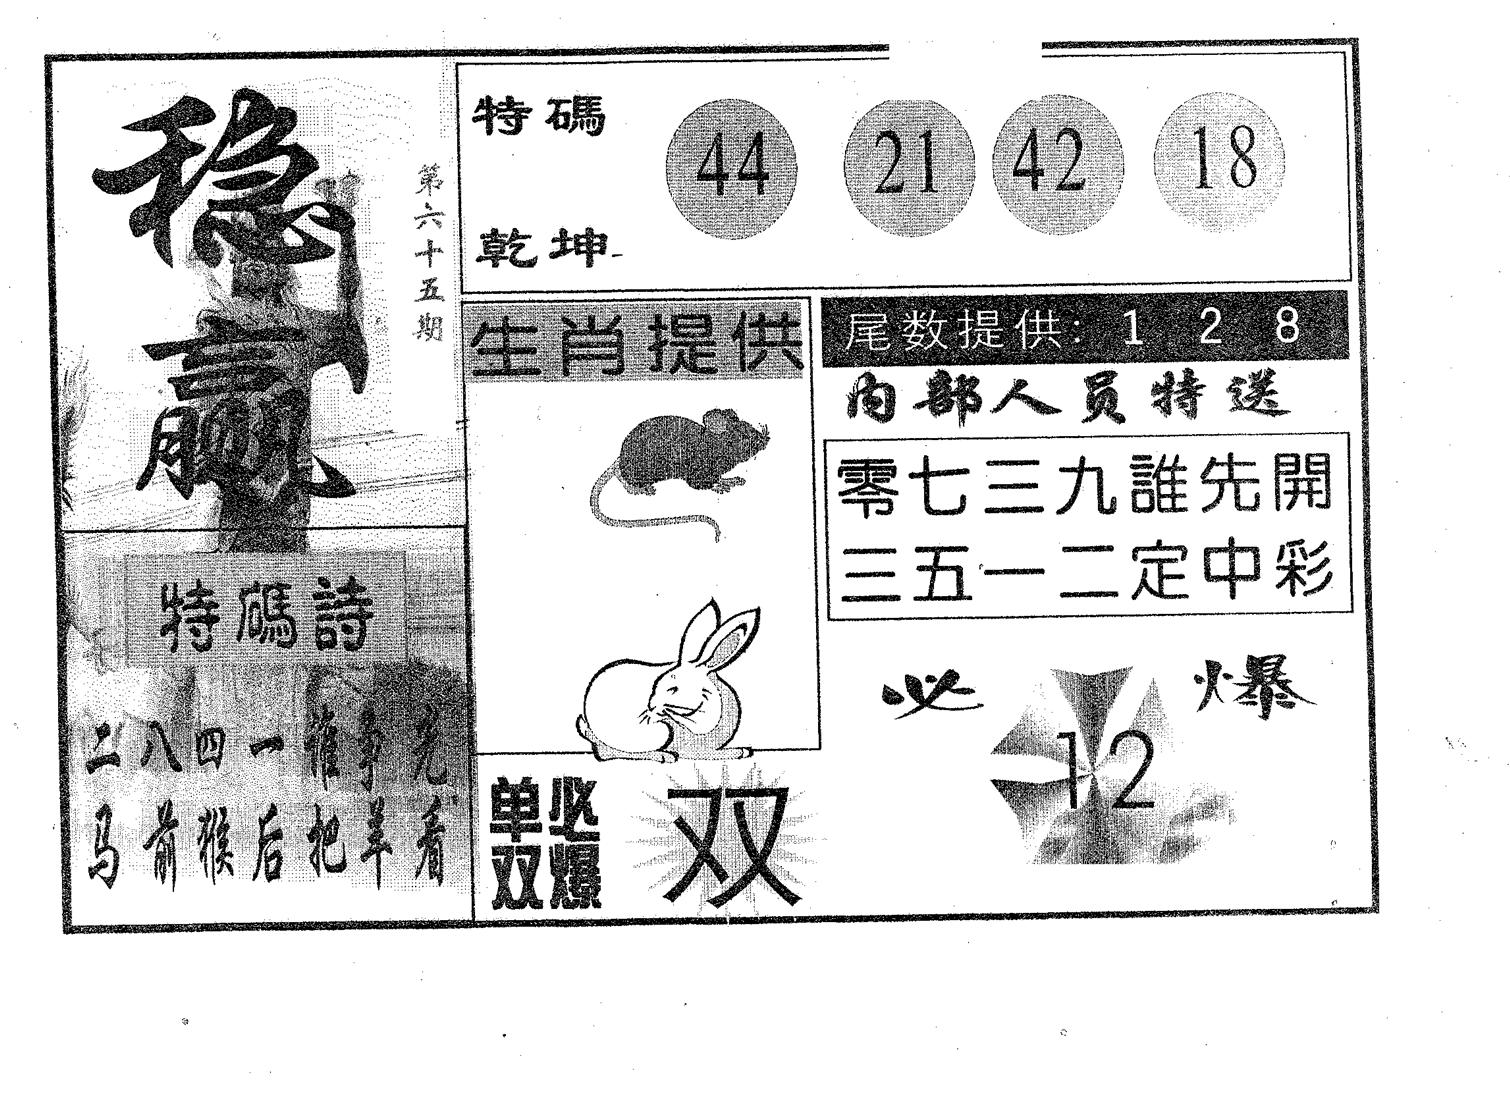 稳
赢
第六十五期
特碼
乾坤
44 21 42 18
生肖提供
尾数提供: 1 2 8
内部人员特送
零七三九誰先開
三五一二定中彩
特碼詩
二八四一谁争先
马前猴后把羊看
必爆
12
单双
必爆
双